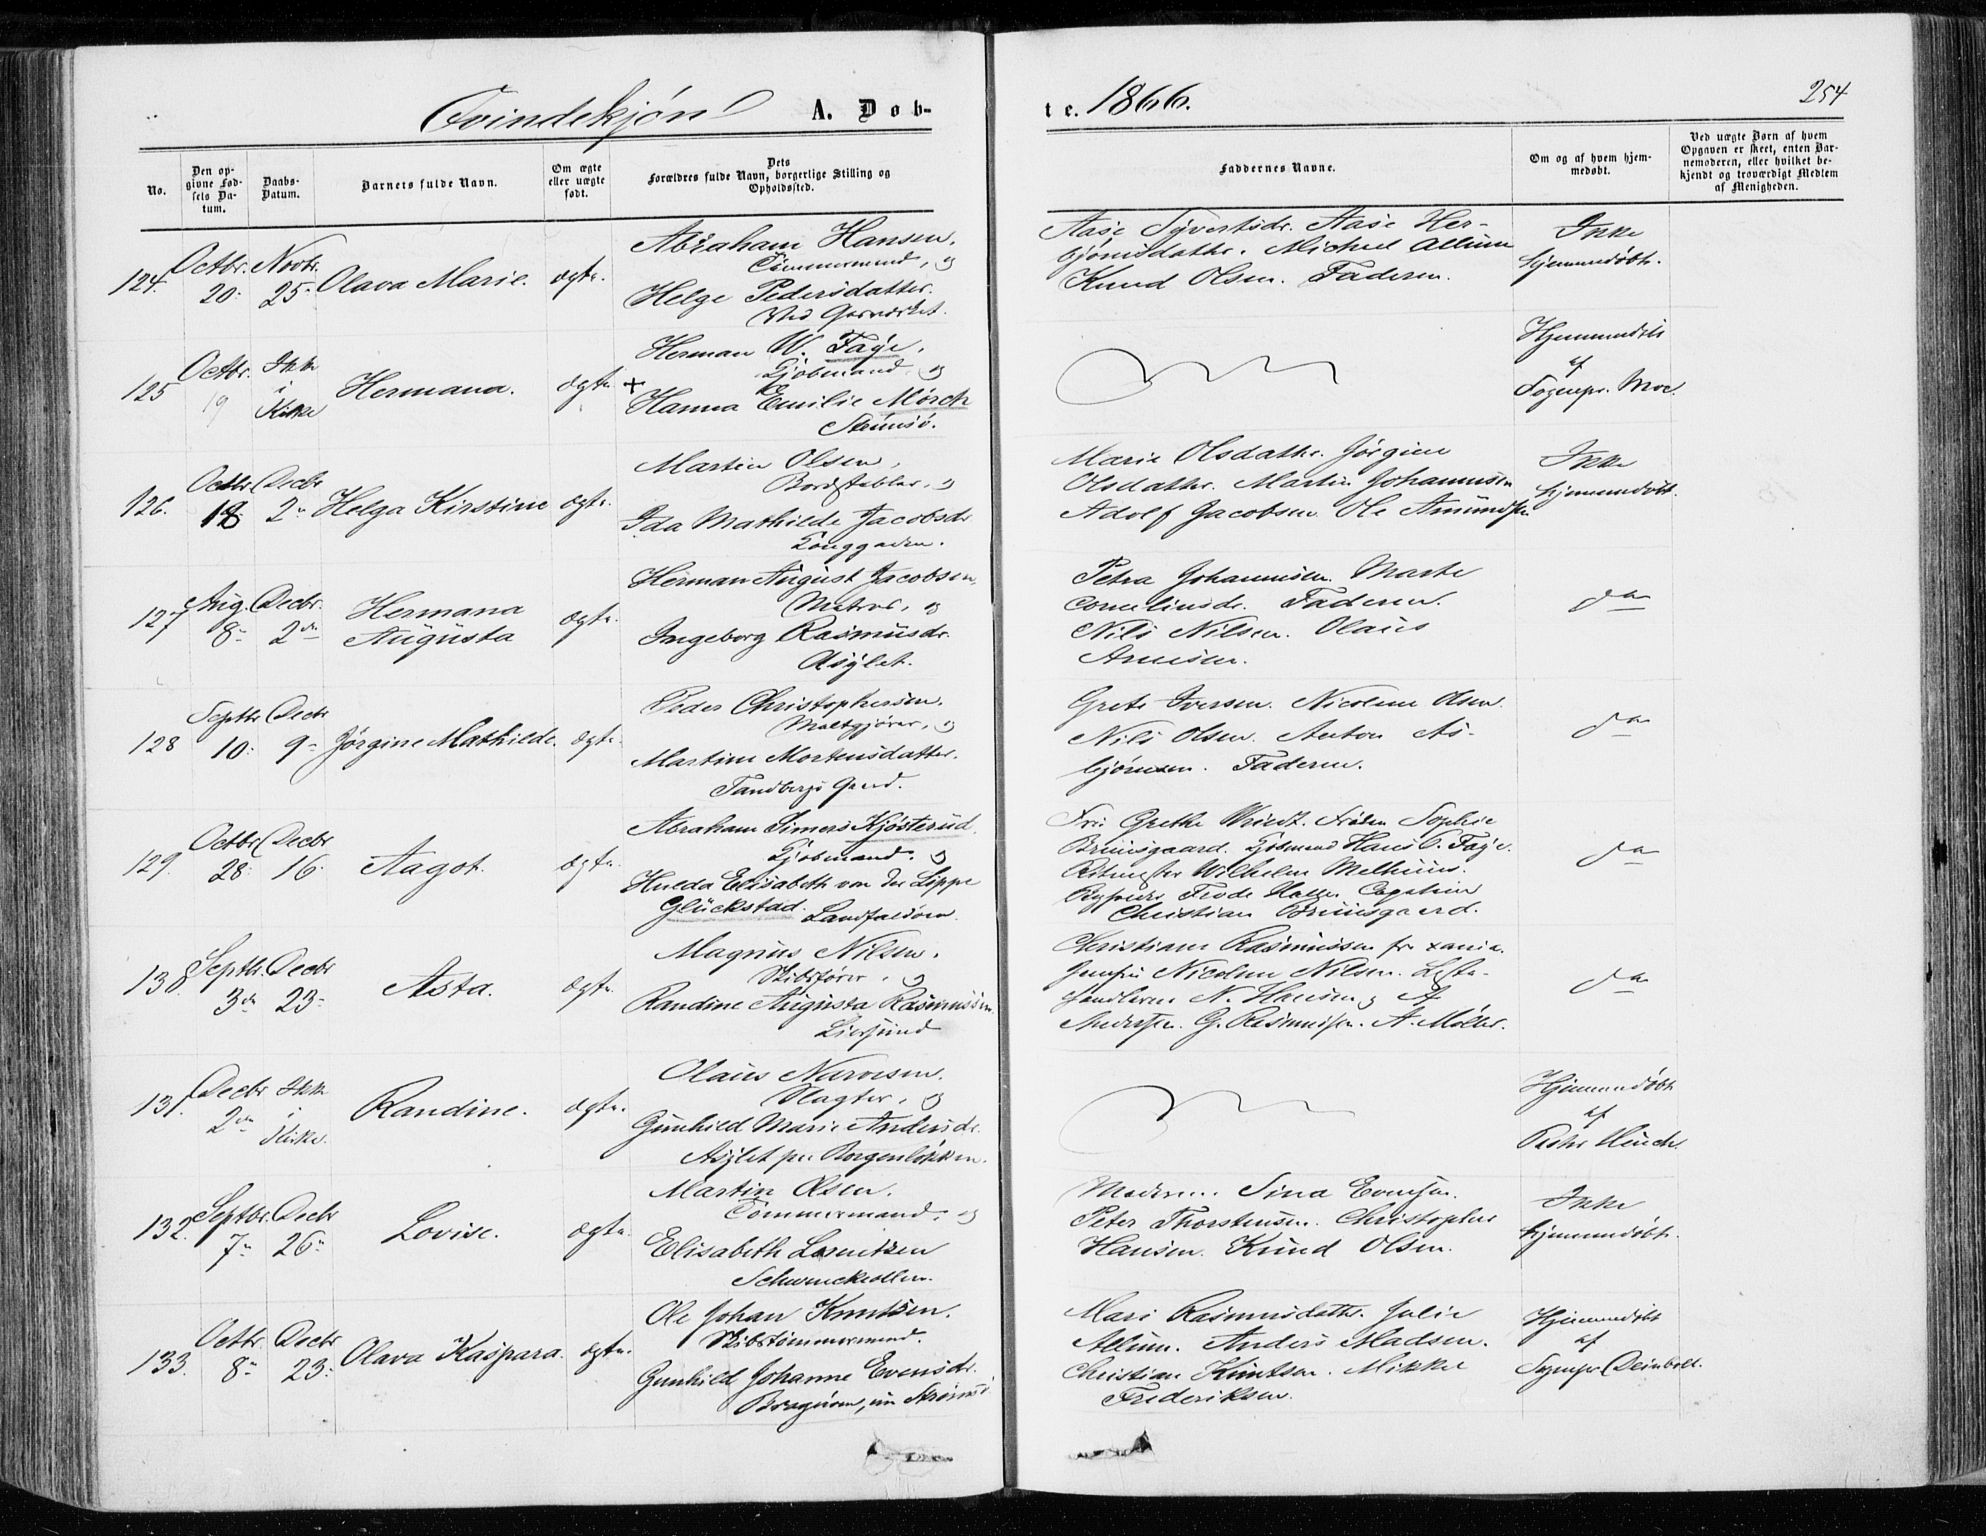 Qvindekjøn A. Døb-
te. 1866. 254
No. Den opgivne Fødsels Datum. Daabs-Datum. Barnets fulde Navn. Om ægte eller uægte født. Dets Forældres fulde Navn, borgerlige Stilling og Opholdssted.
Faddernes Navne. Om og af hvem hjemmedøbt. Ved uægte Børn af hvem Opgaven er skeet, enten Barnemoderen, eller hvilket bekjendt og troværdigt Medlem af Menigheden.
124. Octbr. 20. Novbr. 25. Olava Marie. ægte.
Abraham Hansen,
Tømmermand, og
Helge Pedersdatter.
Ved Garverket.
Aase Syvertsdr. Aase Her-
bjørnsdatter. Michael Allum
Knud Olsen. Faderen.
Ikke
hjemmedøbt.
125 Octbr. 19 Ikke i Kirke Hermana. ægte. +
Herman W. Faye,
Kjøbmand og
Hanna Emilie Mørch
Strømsø.
Hjemmedøbt
af
Sognepr. Moe.
126. Octbr 18 Decbr 2 Helga Kirstine ægte.
Martin Olsen,
Bordstabler, og
Ida Mathilde Jacobsdr
Langgaden.
Marie Olsdatter. Jørgine
Olsdatter. Martin Johannesen
Adolf Jacobsen Ole Amundsen
Ikke
hjemmedøbt.
127 Aug. 8 Decbr. 2den Hermana Augusta ægte.
Herman August Jacobsen,
Matros, og
Ingeborg Rasmusdr.
Asylet.
Petra Johannesen. Marte
Corneliusdr. Faderen.
Nils Nilsen. Olaus
Arnesen.
do
128 Septbr 10. Decbr 9 Jørgine Mathilde. ægte.
Peder Christophersen.
Maltgjører, og
Martine Mortensdatter.
Tandbergs Gaard.
Grete Iversen. Nicoline Olsen
Nils Olsen. Anton As-
bjørnsen. Faderen.
do
129. Octbr 28. Decbr 16. Aagot. ægte.
Abraham Simers Kjøsterud
Kjøbmand. og
Hulda Elisabeth von der Lippe
Glückstad. Landfaldøen.
Fru Grethe Wriedt. Frøken Sophie
Bruusgaard. Kjøbmand Hans C. Faye.
Ritmester Wilhelm Melhuus.
Frode Capitain
Christian Bruusgaard.
do
130. Septbr. 3de Decbr 23 Asta. ægte.
Magnus Nilsen,
Skibsfører, og
Randine Augusta Rasmussen
Liersund
Christiane Rasmussen fra Xania.
Jomfru Nicoline Nilsen.
handlerne N. Hansen og A
Andersen. G. Rasmussen. A. Møller.
do
131. Decbr 2den Ikke i Kirke. Randine. ægte.
Olaus Narvesen.
Slagter, og
Gunhild Marie Andersdr.
Asylet paa Borgenløkken.
Hjemmedøbt
af
132. Septbr. 7 Decbr 26 Lovise. ægte.
Martin Olsen.
Tømmermand, og
Elisabeth Lorentzen
Schwenckeollen.
Moderen. Sina Evensen.
Peter Thorstensen. Christopher
Hansen. Knud Olsen.
Ikke
hjemmedøbt.
133. Octbr. 8 Decbr 23. Olava Kaspara. ægte.
Ole Johan Knutsen.
Skibstømmermand.
Gunhild Johanne Evensdr.
Bragernes, nu Strømsø
Mari Rasmusdatter. Julie
Allum. Anders Madsen.
Christian Knutsen. Mikkel
Frederiksen.
Hjemmedøbt
af
Sognepr Deinboll.